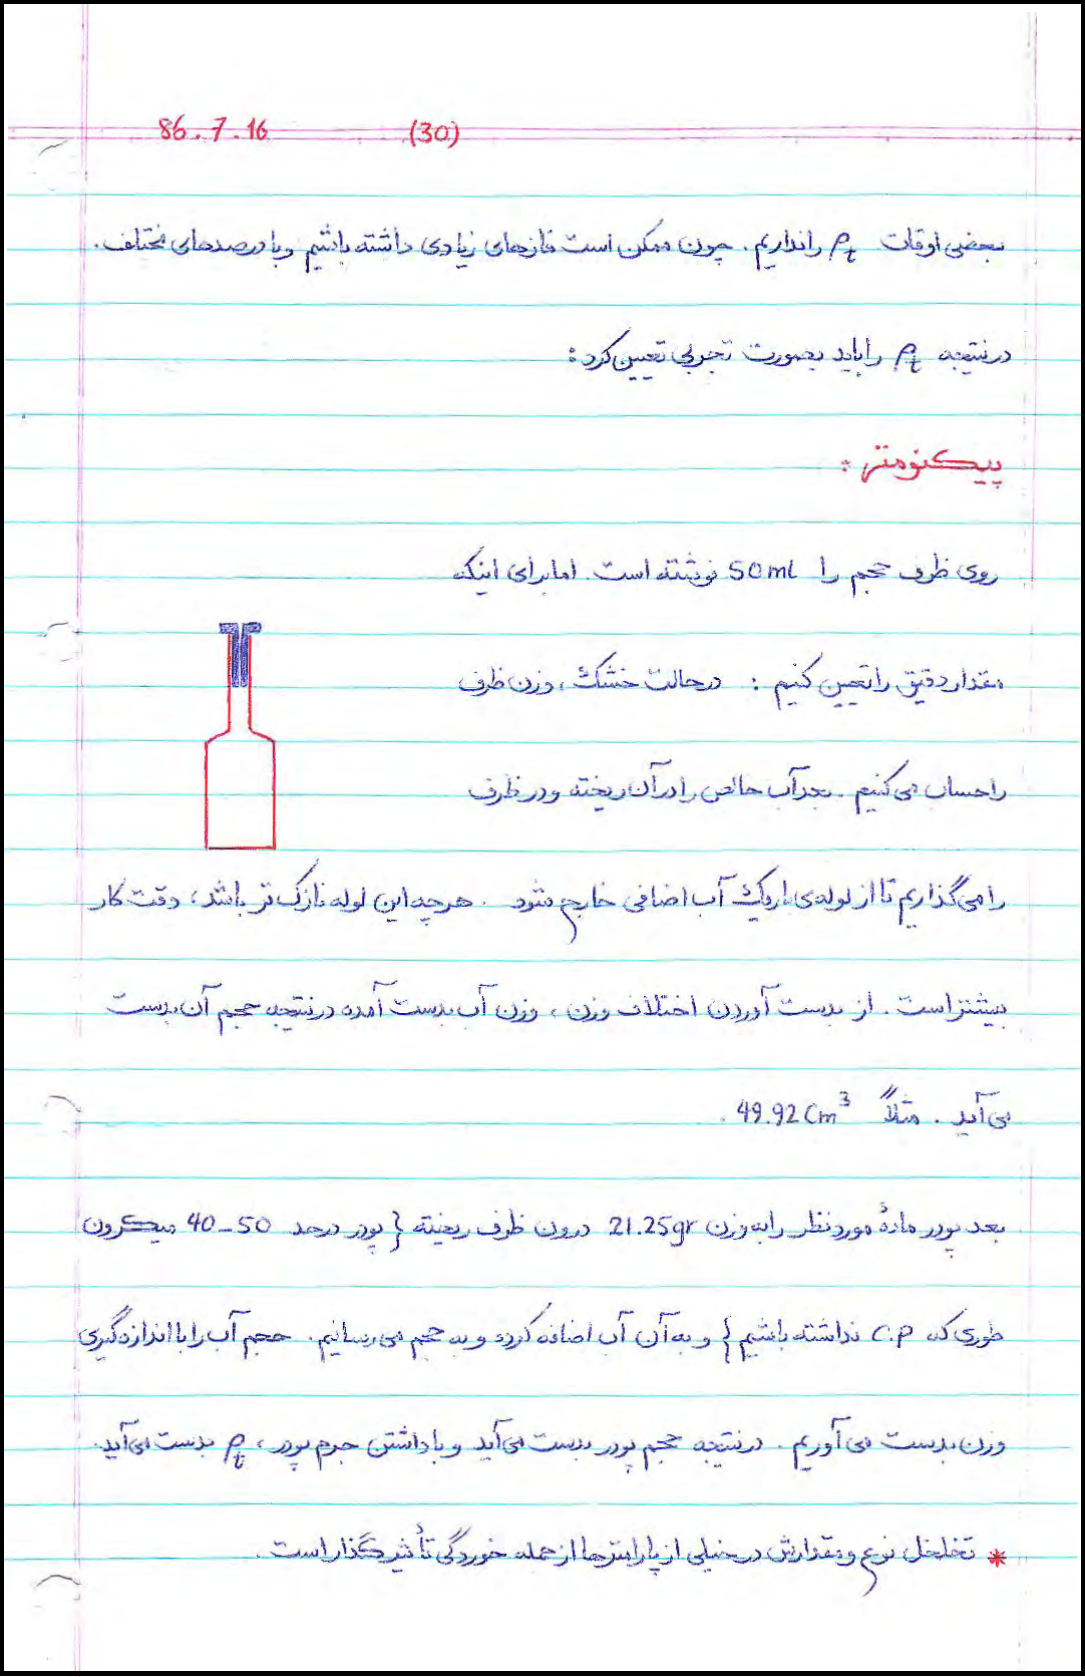 86.7.16 (30)
بعضی اوقات ρt را نداریم. چون ممکن است فازهای زیادی داشته باشیم و با درصدهای مختلف.
در نتیجه ρt را باید بصورت تجربی تعیین کرد:
پیکنومتر:
روی ظرف حجم را 50ml نوشته است. اما برای اینکه
مقدار دقیق را تعیین کنیم: در حالت خشک، وزن ظرف
را حساب می کنیم. بعد آب خالص را در آن ریخته و در ظرف
را می گذاریم تا از لوله ی باریک آب اضافی خارج شود. هر چه این لوله نازک تر باشد، دقت کار
بیشتر است. از بدست آوردن اختلاف وزن، وزن آب بدست آمده در نتیجه حجم آن بدست
می آید. مثلاً 49.92 Cm³.
بعد پودر مادهٔ مورد نظر را به وزن 21.25gr درون ظرف ریخته } پودر در حد 50-40 میکرون
طوری که C.P نداشته باشیم { و به آن آب اضافه کرده و به حجم می رسانیم. حجم آب را با اندازه گیری
وزن بدست می آوریم. در نتیجه حجم پودر بدست می آید و با داشتن جرم پودر، ρt بدست می آید.
* تخلخل نوع و مقدارش در خیلی از پارامترها از جمله خوردگی تأثیر گذار است.